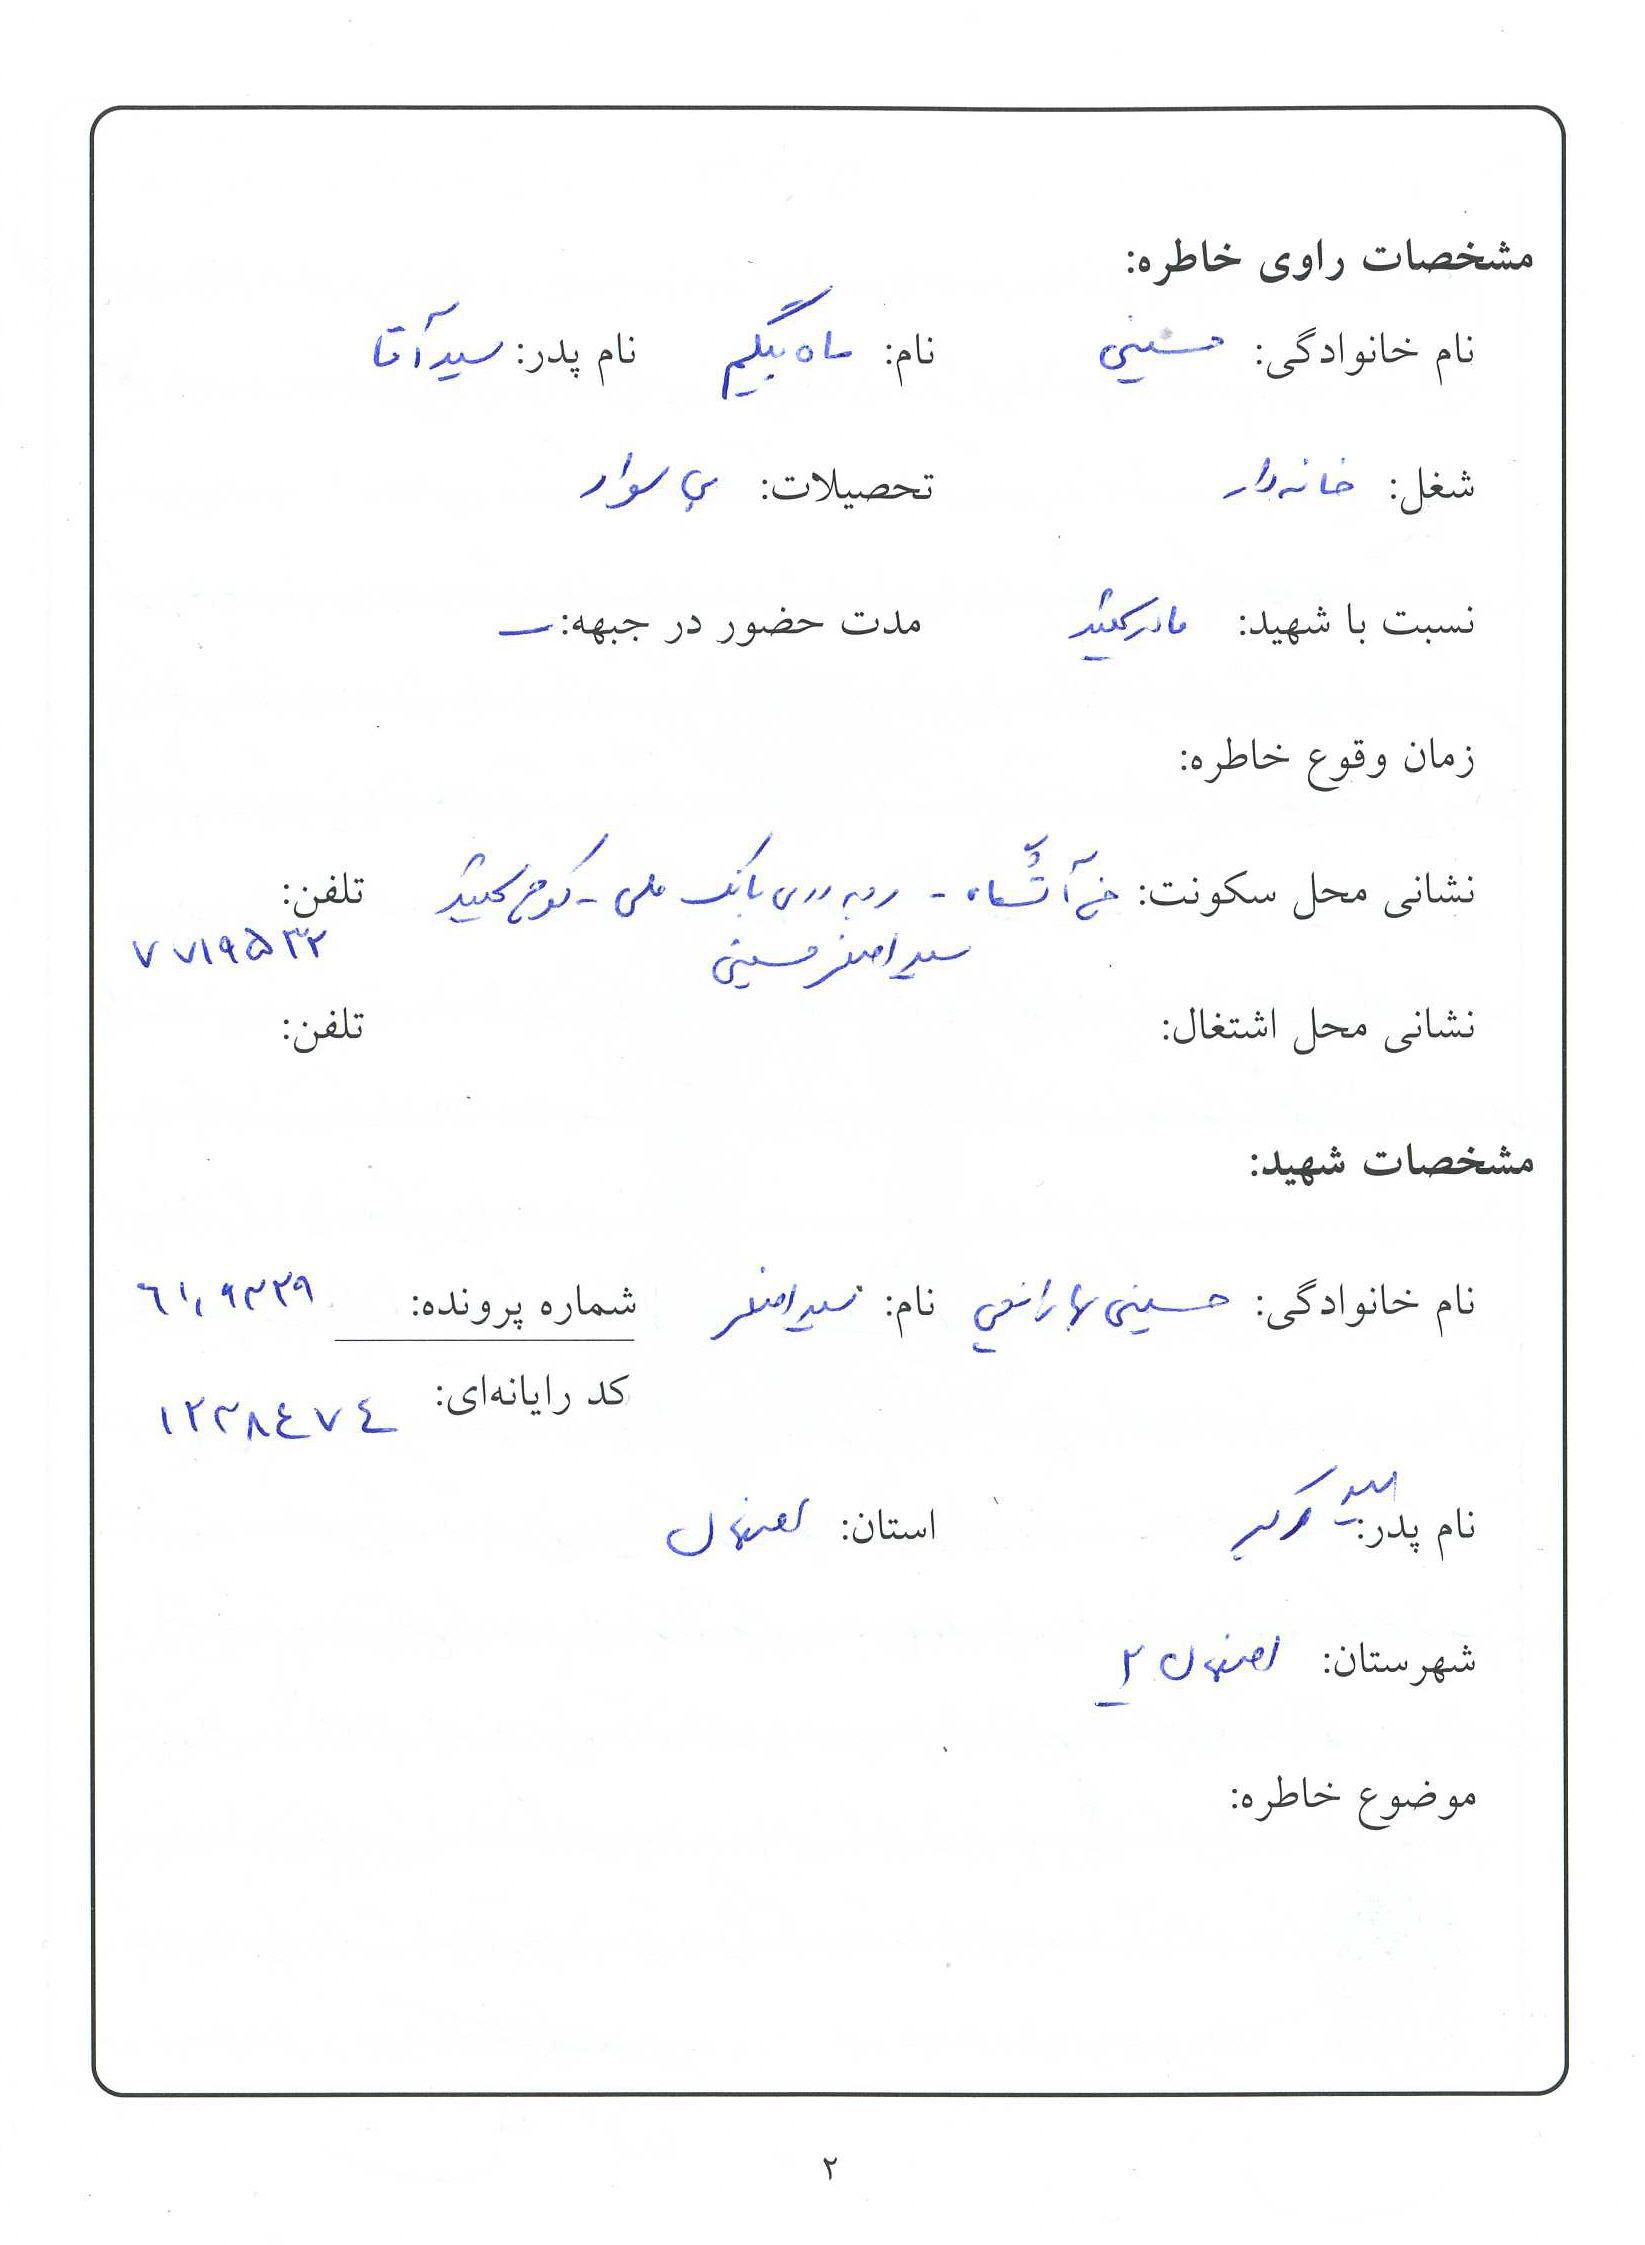 مشخصات راوی خاطره:
نام خانوادگی: حسینی نام: ماه بیگم نام پدر: سید آقا
شغل: خانه‌دار تحصیلات: بی سواد
نسبت با شهید: مادر شهید مدت حضور در جبهه: ـ
زمان وقوع خاطره:
نشانی محل سکونت: خ آتشگاه - روبه روی بانک ملی - کوچه شهید تلفن:
سید اصغر حسینی ۷۷۱۹۵۳۲
نشانی محل اشتغال: تلفن:
مشخصات شهید:
نام خانوادگی: حسینی نام: سید اصغر شماره پرونده: ۶۱۰۹۳۳۹
کد رایانه‌ای: ۱۲۳۸۴۷۴
نام پدر: سید استان: اصفهان
شهرستان: اصفهان ۲
موضوع خاطره:
۲